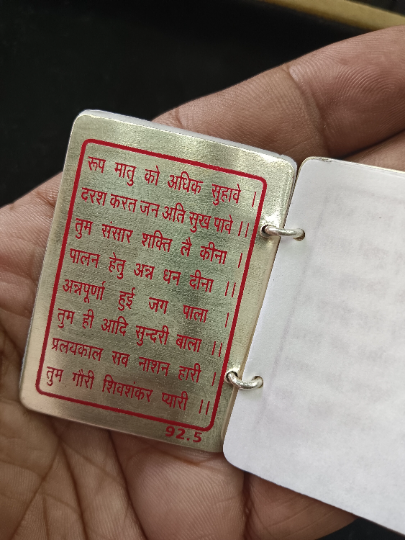 रूप मातु को अधिक सुहावे ।
दरश करत जन अति सुख पावे ।।
तुम संसार शक्ति लै कीना ।
पालन हेतु अन्न धन दीना ।।
अन्नपूर्णा हुई जग पाला ।
तुम ही आदि सुन्दरी बाला ।।
प्रलयकाल सव नाशन हारी ।
तुम गौरी शिवशंकर प्यारी ।।
92.5